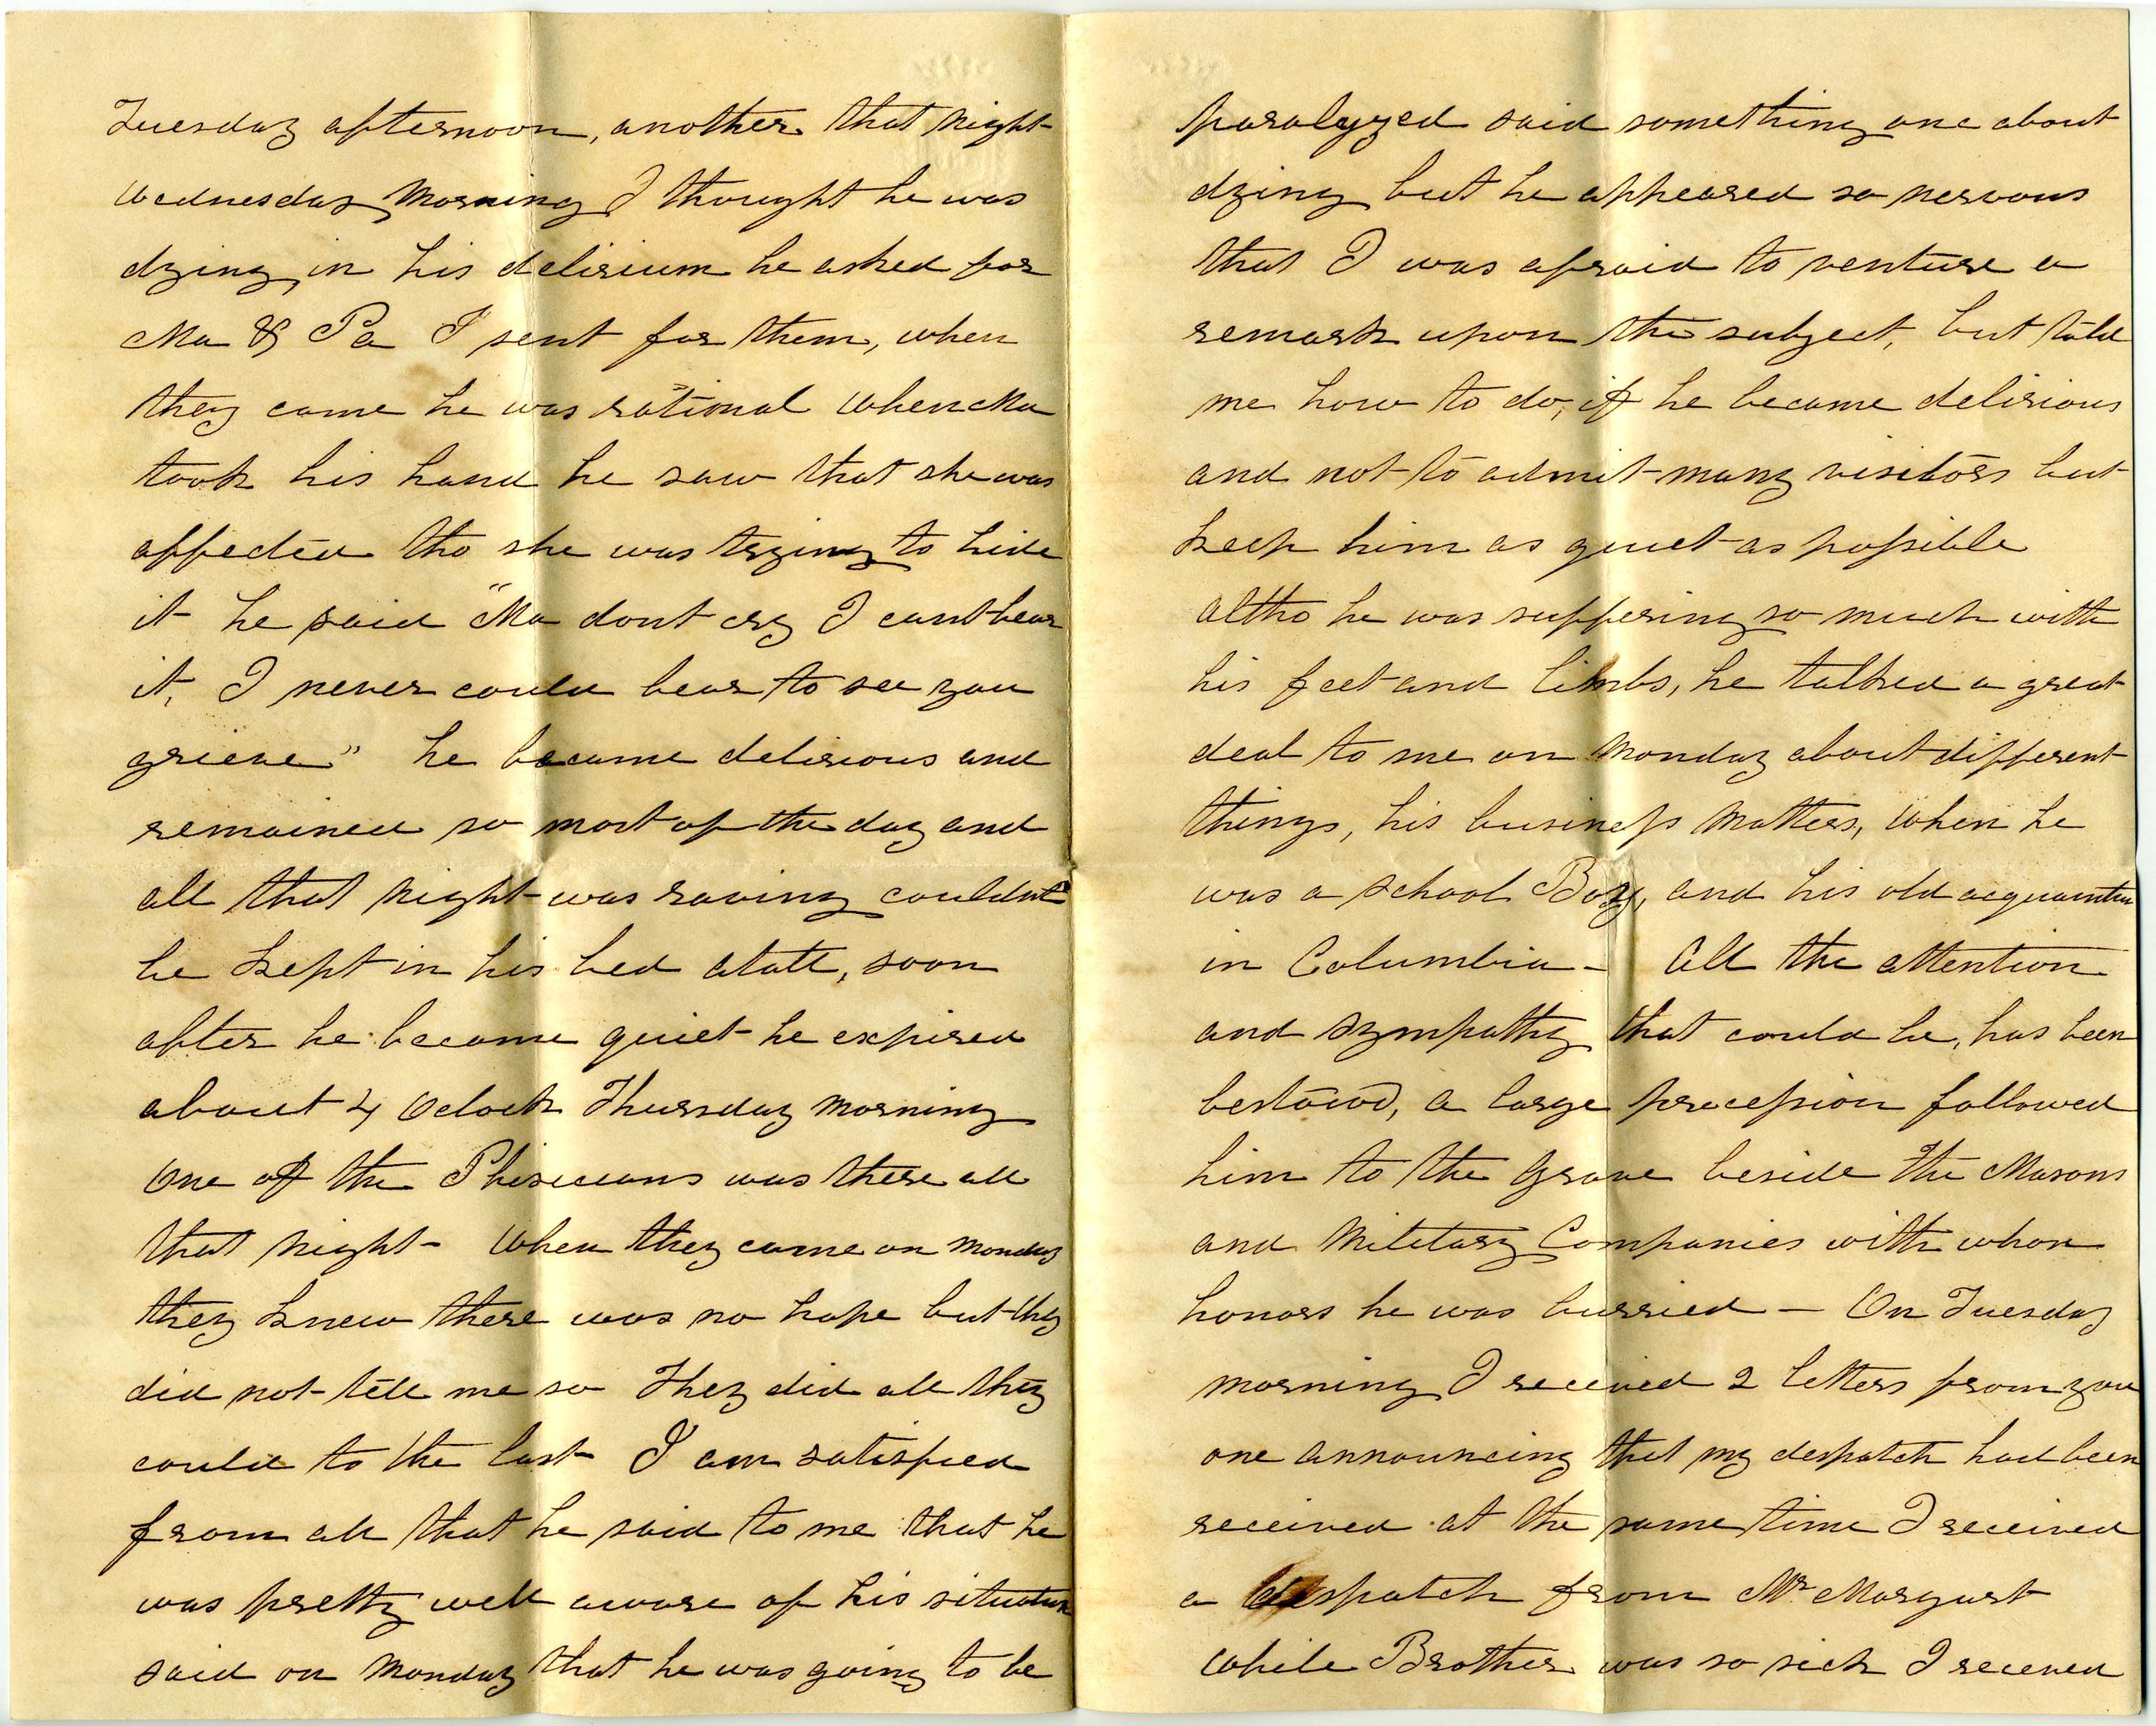 Tuesday afternoon, another that night
Wednesday Morning I thought he was
dying, in his delirium he asked for
Ma & Pa I sent for them, when
they came he was rational When Ma
took his hand he saw that she was
affected tho she was trying to hide
it he said "Ma dont cry I cant bear
it, I never could bear to see you
grieve" he became delirious and
remained so most of the day and
all that night was raving couldnt
be kept in his bed atall, soon
after he became quiet he expired
about 4 Oclock Thursday morning
One of the Phisicians was there all
that night - When they came on Monday
they knew there was no hope but they
did not tell me so They did all they
could to the last I am satisfied
from all that he said to me that he
was pretty well aware of his situation
said on Monday that he was going to be
paralyzed said something one about
dying but he appeared so nervous
that I was afraid to venture a
remark upon the subject, but told
me how to do, if he became delirious
and not to admit many visitors but
keep him as quiet as possible
altho he was suffering so much with
his feet and limbs, he talked a great
deal to me on Monday about different
things, his business Matters, when he
was a School Boy, and his old
in Columbia - All the attention
and sympathy that could be, has been
bestowd, a large precession followed
him to the Grave beside the Masons
and Military Companies with whom
honors he was burried - On Tuesday
morning I received 2 letters from you
one announcing that my despatch had been
received at the same time I received
a despatch from Mr Margart
While Brother was so sick I receved